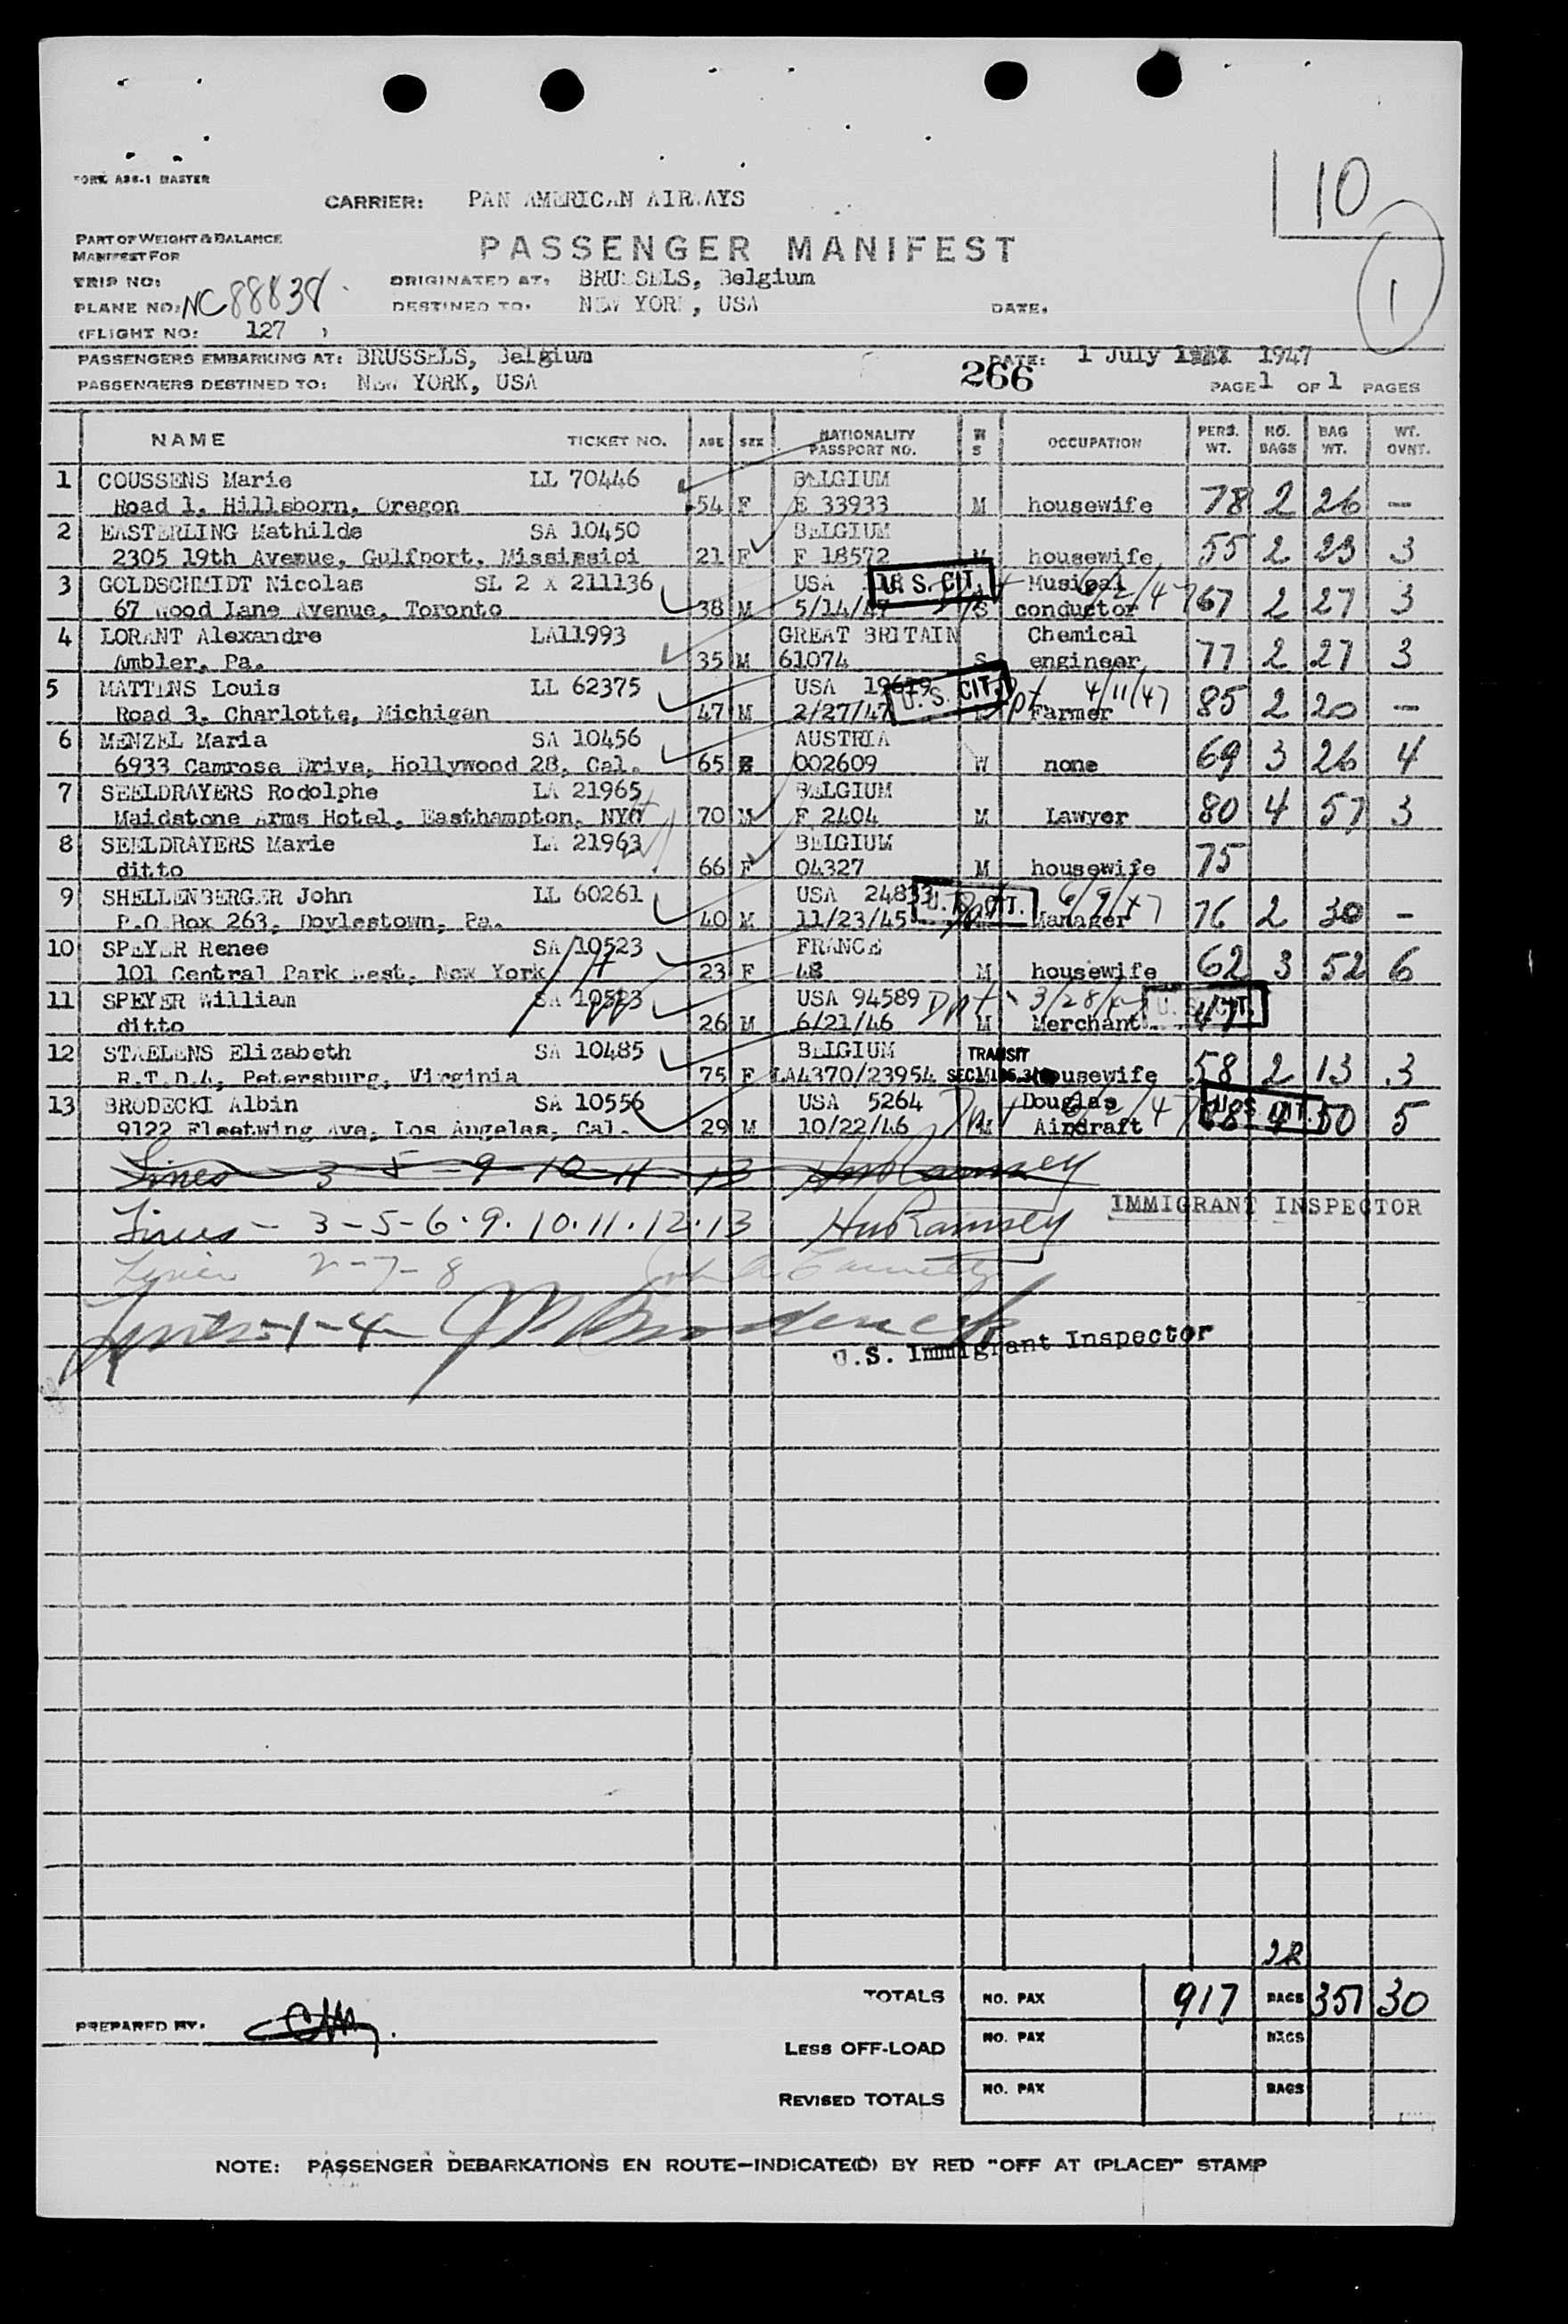 10
1
FORM A26-1 MASTER
CARRIER: PAN AMERICAN AIRWAYS
PART OF WEIGHT & BALANCE
MANIFEST FOR
PASSENGER MANIFEST
TRIP NO:
ORIGINATED AT: BRUSSELS, Belgium
PLANE NO: NC88838
DESTINED TO: NEW YORK, USA
DATE:
(FLIGHT NO: 127 )
PASSENGERS EMBARKING AT: BRUSSELS, Belgium
DATE: 1 July 1947
PASSENGERS DESTINED TO: NEW YORK, USA
266
PAGE 1 OF 1 PAGES
NAME TICKET NO. AGE SEX NATIONALITY PASSPORT NO. M S OCCUPATION PERS. WT. NO. BAGS BAG WT. WT. OVNT.
1 COUSSENS Marie LL 70446 BELGIUM
Road 1, Hillsborn, Oregon 54 F E 33933 M housewife 78 2 26 —
2 EASTERLING Mathilde SA 10450 BELGIUM
2305 19th Avenue, Gulfport, Mississipi 21 F F 18572 M housewife 55 2 23 3
3 GOLDSCHMIDT Nicolas SL 2 X 211136 USA U. S. CIT. Musical
67 Wood Lane Avenue, Toronto 38 M 5/14/47 S conductor 67 2 27 3
4 LORANT Alexandre LA11993 GREAT BRITAIN Chemical
Ambler, Pa. 35 M 61074 S engineer 77 2 27 3
5 MATTENS Louis LL 62375 USA 19619 U. S. CIT. Dpt 4/11/47
Road 3, Charlotte, Michigan 47 M 2/27/47 Farmer 85 2 20 —
6 MENZEL Maria SA 10456 AUSTRIA
6933 Camrose Drive, Hollywood 28, Cal. 65 F 002609 W none 69 3 26 4
7 SEELDRAYERS Rodolphe LA 21965 BELGIUM
Maidstone Arms Hotel, Easthampton, NYC 70 M F 2404 M Lawyer 80 4 57 3
8 SEELDRAYERS Marie LA 21963 BELGIUM
ditto 66 F 04327 M housewife 75
9 SHELLENBERGER John LL 60261 USA 24833 U. S. CIT. 6/9/47
P.O Box 263, Doylestown, Pa. 40 M 11/23/45 Manager 76 2 30 —
10 SPEYER Renee SA 10523 FRANCE
101 Central Park West, New York 23 F 48 M housewife 62 3 52 6
11 SPEYER William SA 10523 USA 94589 Dpt 3/28/47 U. S. CIT.
ditto 26 M 6/21/46 M Merchant
12 STAELENS Elizabeth SA 10485 BELGIUM TRANSIT
R.T.D.4, Petersburg, Virginia 75 F LA4370/23954 housewife 58 2 13 3
13 BRODECKI Albin SA 10556 USA 5264 Dpt Douglas U. S. CIT.
9122 Fleetwing Ave, Los Angeles, Cal. 29 M 10/22/46 M Aircraft 68 4 50 5
Lines 3 5 9 10 11 13 HW Ramsey
Lines - 3-5-6.9.10.11.12.13 HW Ramsey
IMMIGRANT INSPECTOR
Lines 2-7-8
Lines-1-4
U.S. Immigrant Inspector
28
TOTALS NO. PAX 917 BAGS 351 30
PREPARED BY:
LESS OFF-LOAD NO. PAX BAGS
REVISED TOTALS NO. PAX BAGS
NOTE: PASSENGER DEBARKATIONS EN ROUTE—INDICATE(D) BY RED "OFF AT (PLACE)" STAMP